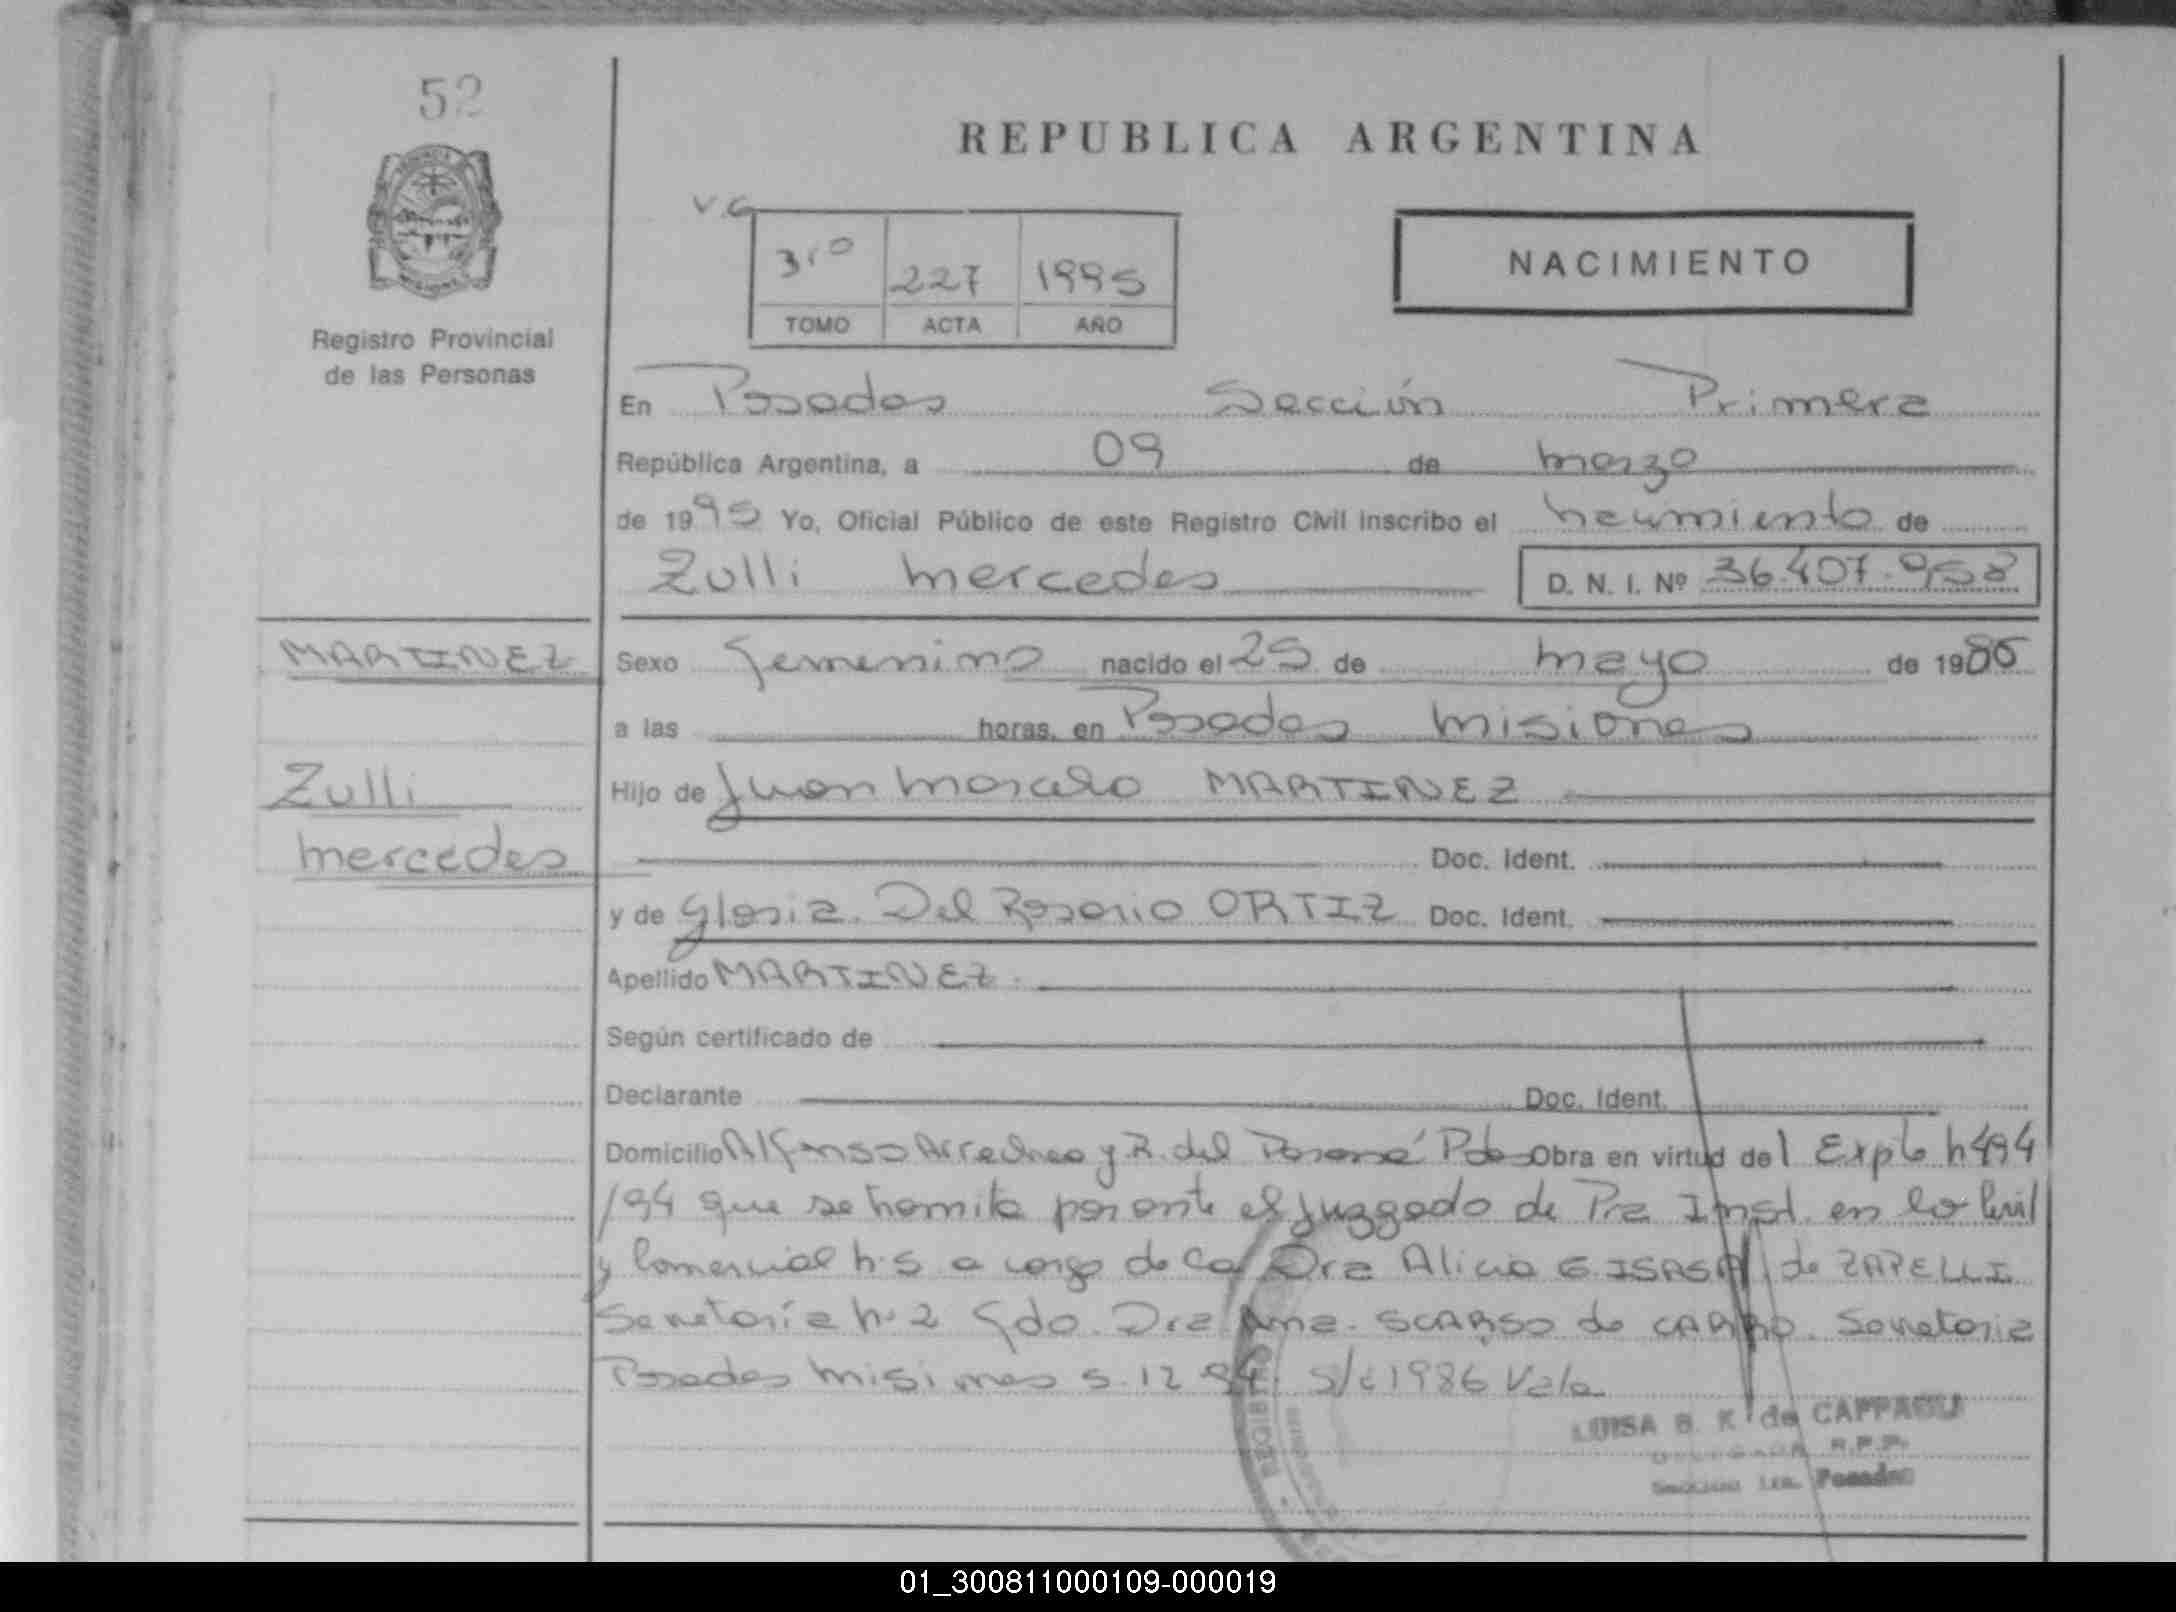 52
REPUBLICA ARGENTINA
V.G
3ro 227 1995
TOMO ACTA AÑO
NACIMIENTO
Registro Provincial
de las Personas
En Posadas Sección Primera
República Argentina, a 09 de marzo
de 1995 Yo, Oficial Público de este Registro Civil inscribo el nacimiento de
Zulli mercedes D. N. I. Nº 36.407.958
MARTINEZ
Zulli
mercedes
Sexo femenino nacido el 25 de mayo de 1986
a las horas, en Posadas misiones
Hijo de Juan Marcelo MARTINEZ
Doc. Ident.
y de Gloria Del Rosario ORTIZ Doc. Ident.
Apellido MARTINEZ
Según certificado de
Declarante Doc. Ident.
Domicilio Alfonso y R. del Pdas Obra en virtud del Expte n 494
/94 que se tramita por ante el Juzgado de Pra Inst. en lo Civil
y Comercial n.5 a cargo de la Dra Alicia de ZAPELLI
Secretaría n.2 fdo. Dra Ana SCARSO de Secretaria
Posadas Misiones 5.12.94. 1986 Vale
LUISA B. K de CAPPAGLI
R.P.P.
Posadas
REGISTRO
01_300811000109-000019